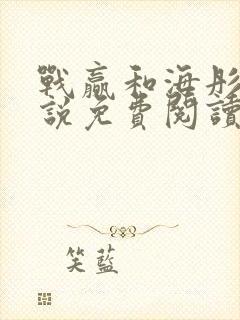 戰贏和海彤
說免費閱讀
笑藍